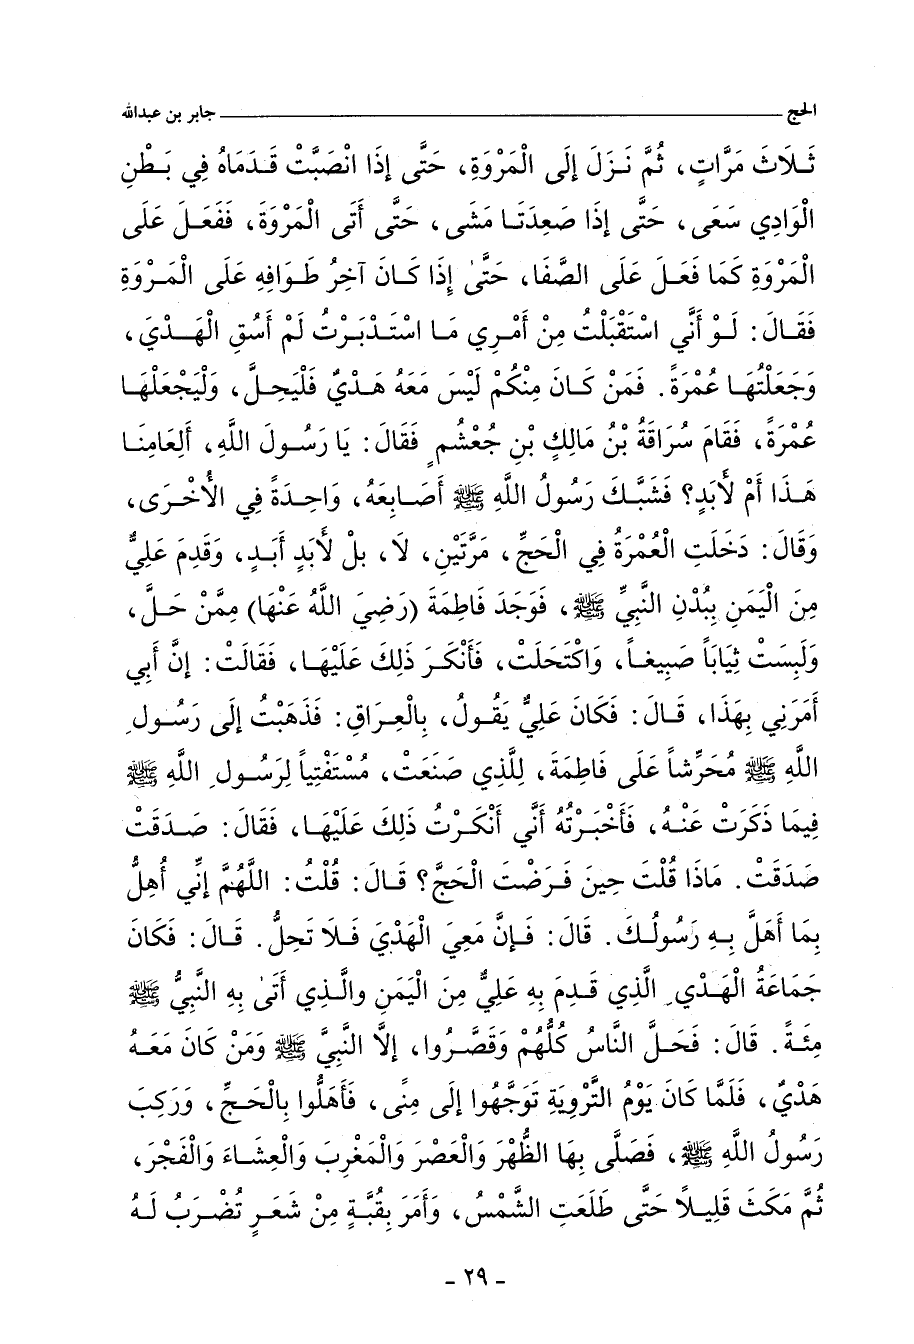 الحج جابر بن عبدالله
ثَلَاثَ مَرَّاتٍ، ثُمَّ نَزَلَ إِلَى الْمَرْوَةِ، حَتَّى إِذَا انْصَبَّتْ قَدَمَاهُ فِي بَطْنِ
الْوَادِي سَعَى، حَتَّى إِذَا صَعِدَتَا مَشَى، حَتَّى أَتَى الْمَرْوَةَ، فَفَعَلَ عَلَى
الْمَرْوَةِ كَمَا فَعَلَ عَلَى الصَّفَا، حَتَّىٰ إِذَا كَانَ آخِرُ طَوَافِهِ عَلَى الْمَرْوَةِ
فَقَالَ: لَوْ أَنِّي اسْتَقْبَلْتُ مِنْ أَمْرِي مَا اسْتَدْبَرْتُ لَمْ أَسُقِ الْهَدْيَ،
وَجَعَلْتُهَا عُمْرَةً. فَمَنْ كَانَ مِنْكُمْ لَيْسَ مَعَهُ هَدْيٌ فَلْيَحِلَّ، وَلْيَجْعَلْهَا
عُمْرَةً، فَقَامَ سُرَاقَةُ بْنُ مَالِكِ بْنِ جُعْشُمٍ فَقَالَ: يَا رَسُولَ اللَّهِ، أَلِعَامِنَا
هَذَا أَمْ لأَبَدٍ؟ فَشَبَّكَ رَسُولُ اللَّهِ ﷺ أَصَابِعَهُ، وَاحِدَةً فِي الأُخْرَى،
وَقَالَ: دَخَلَتِ الْعُمْرَةُ فِي الْحَجِّ، مَرَّتَيْنِ، لَا، بلْ لأَبَدٍ أَبَدٍ، وَقَدِمَ عَلِيٌّ
مِنَ الْيَمَنِ بِبُدْنِ النَّبِيِّ ﷺ، فَوَجَدَ فَاطِمَةَ (رَضِيَ اللَّهُ عَنْهَا) مِمَّنْ حَلَّ،
وَلَبِسَتْ ثِيَاباً صَبِيغاً، وَاكْتَحَلَتْ، فَأَنْكَرَ ذَلِكَ عَلَيْهَا، فَقَالَتْ: إِنَّ أَبِي
أَمَرَنِي بِهَذَا، قَالَ: فَكَانَ عَلِيٌّ يَقُولُ، بِالْعِرَاقِ: فَذَهَبْتُ إِلَى رَسُولِ
اللَّهِ ﷺ مُحَرِّشاً عَلَى فَاطِمَةَ، لِلَّذِي صَنَعَتْ، مُسْتَفْتِياً لِرَسُولِ اللَّهِ ﷺ
فِيمَا ذَكَرَتْ عَنْهُ، فَأَخْبَرْتُهُ أَنِّي أَنْكَرْتُ ذَلِكَ عَلَيْهَا، فَقَالَ: صَدَقَتْ
صَدَقَتْ. مَاذَا قُلْتَ حِينَ فَرَضْتَ الْحَجَّ؟ قَالَ: قُلْتُ: اللَّهُمَّ إِنِّي أُهِلُّ
بِمَا أَهَلَّ بِهِ رَسُولُكَ. قَالَ: فَإِنَّ مَعِيَ الْهَدْيَ فَلَا تَحِلُّ. قَالَ: فَكَانَ
جَمَاعَةُ الْهَدْيِ الَّذِي قَدِمَ بِهِ عَلِيٌّ مِنَ الْيَمَنِ والَّذِي أَتَىٰ بِهِ النَّبِيُّ ﷺ
مِئَةً. قَالَ: فَحَلَّ النَّاسُ كُلُّهُمْ وَقَصَّرُوا، إِلَّا النَّبِيَّ ﷺ وَمَنْ كَانَ مَعَهُ
هَدْيٌ، فَلَمَّا كَانَ يَوْمُ التَّرْوِيَةِ تَوَجَّهُوا إِلَى مِنًى، فَأَهَلُّوا بِالْحَجِّ، وَرَكِبَ
رَسُولُ اللَّهِ ﷺ، فَصَلَّى بِهَا الظُّهْرَ وَالْعَصْرَ وَالْمَغْرِبَ وَالْعِشَاءَ وَالْفَجْرَ،
ثُمَّ مَكَثَ قَلِيلاً حَتَّى طَلَعَتِ الشَّمْسُ، وَأَمَرَ بِقُبَّةٍ مِنْ شَعَرٍ تُضْرَبُ لَهُ
- ٢٩ -